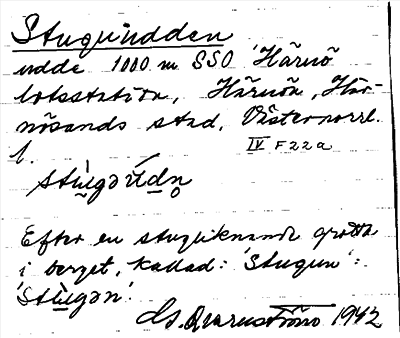 Stuguudden
udde 1000 m SSO Härnö
lotsstation, Härnön, Här-
nösands stad, Västernorrl.
l.
IV F22a
Efter en stuguliknande grotta
i berget, kallad: 'Stugun':
G. Qvarnström 1942